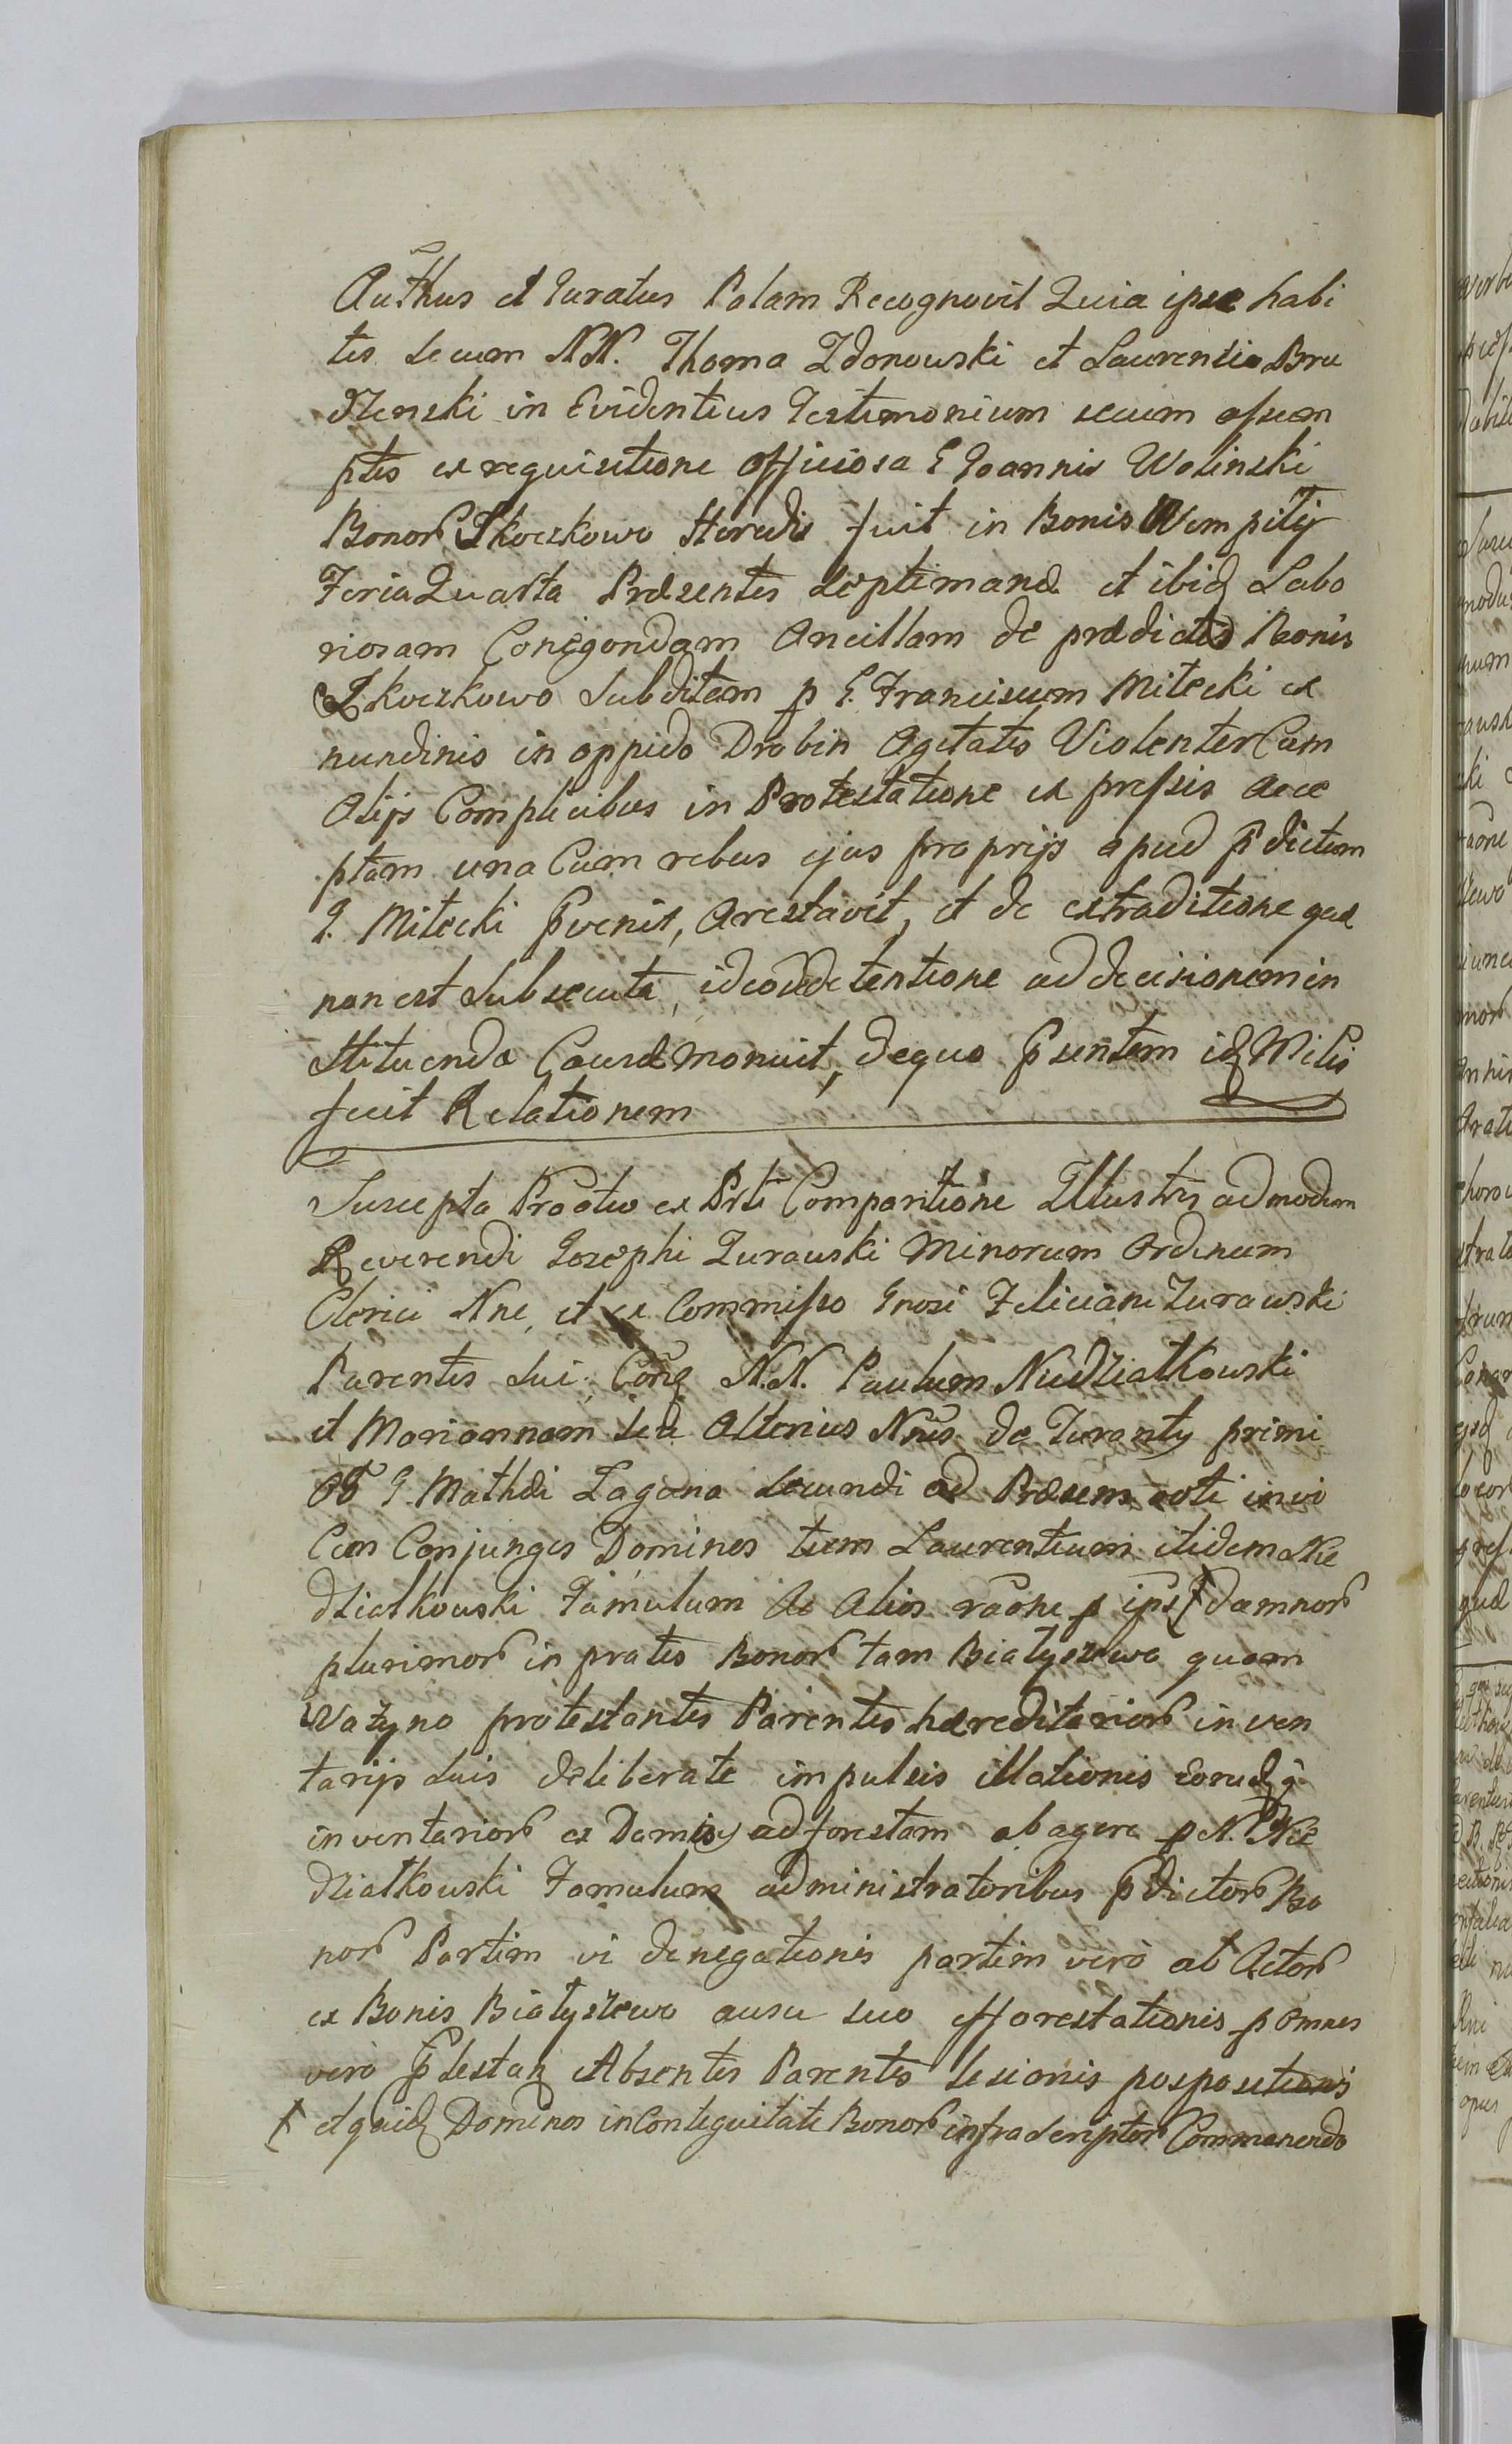 Authus et Juratus Palam Recognovit Quia ipse habi
tis secum NN. Thoma Zdonowski et Laurentio Bru
dzenski in Evidentius Testimonium secum assum
ptis ex requisitione officiosa G Joannis Wolinski
Bonor Skoczkowo Heredis fuit in Bonis Wempiły
Feria Quarta Præsentis Septimanæ et ibiq Labo
riosam Conegondam Ancillam de prædictis Bonis
Skoczkowo Subditam p G. Franciscum Miłecki ex
nundinis in oppido Drobin Agitatis Violenter Cum
Alijs Complicibus in Protestatione ex pressis acce
ptam una Cum rebus ejus proprijs apud pdictum
G. Miłecki pvenit, Arestavit, et de extraditione quæ
non est Subsecuta, ideo de detentione ad decisionem in
stituendæ Causæ monuit, de quo psentem idq Milis
fecit Relationem
Suscepta Protio ex Prti Comparitione Illustris admodum
Reverendi Josephi Zurawski Minorum Ordinum
Clerici Nne, et ex Commisso Gnosi Feliciani Zurawski
Parentis Sui, Conq N.N. Paulum Niedziałkowski
et Mariannam de Alterius Nnis de Turanty primi
Ob G Mathæi Łagona secundi ad Præsens voti invi
Cem Conjunges Dominos tum Laurentium itidem Nie
działkowski Famulum Ac Alios raone p ips Damnor
plurimor in pratis Bonor tam Białyszewo quam
Ważyno protestantis Parentis hæreditarior inven
tarijs suis deliberate impulsis illationis Eorudq
inventarior ex Damis ad forestam abagere p N. Nie
działkowski Famulum administratoribus pdictor Bo
nor Partim vi denegationis partim vero ab Actor
ex Bonis Białyszewo ausu suo efforestationis p omnes
vero ptestanq Absentis Parentis lesionis pospositionis
et quidq Dominos in Contiguitate Bonor infrascriptor Commanendo